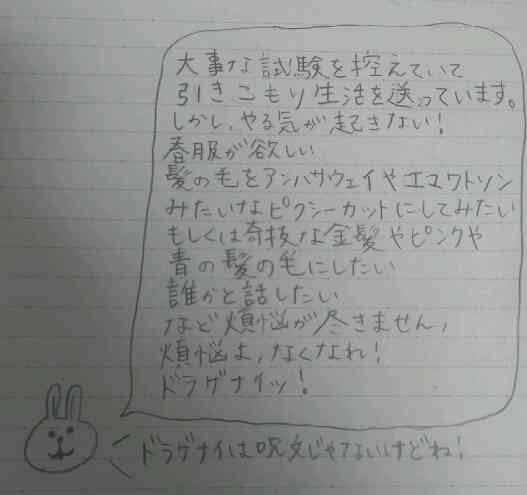 大事な試験を控えていて
引きこもり生活を送っています。
しかし、やる気が起きない!
春服が欲しい
髪の毛をアンハサウェイやエマワトソン
みたいなピクシーカットにしてみたい
もしくは奇抜な金髪やピンクや
青の髪の毛にしたい
誰かと話したい
など煩悩が尽きません、
煩悩よ、なくなれ!
ドラゲナイッ!
ドラゲナイは呪文じゃないけどね!